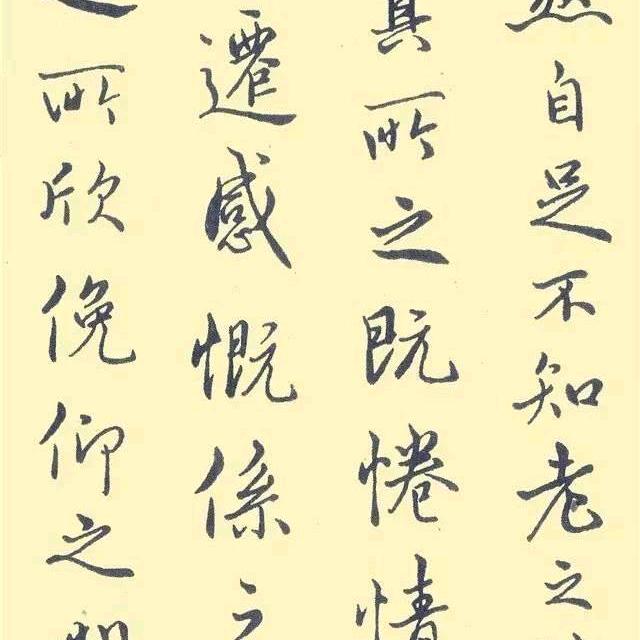 然自足不知老之
其所之既惓情
遷感慨係之
所欣俛仰之